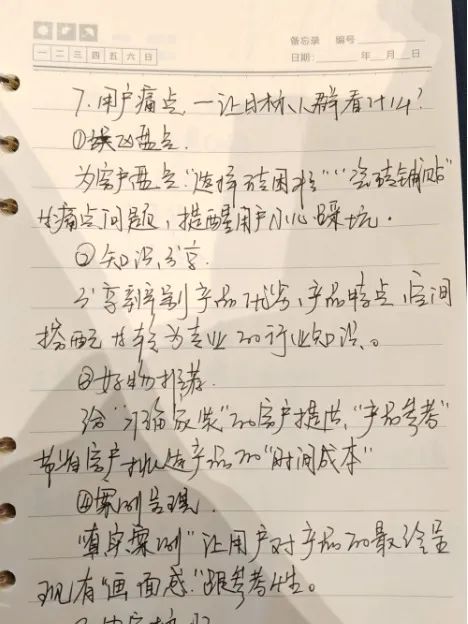 备忘录 编号
一 二 三 四 五 六 日 日期: 年 月 日
7.用户痛点,一让目标人群看什么?
①误区盘点.
为客户盘点“选择砖困难”“瓷砖铺贴”
等痛点问题,提醒用户小心踩坑.
②知识分享.
分享辨别产品优劣,产品特点,空间
搭配等较为专业的行业知识。
③好物推荐.
给“准备改装”的客户提供“产品参考”
节省客户挑选产品的“时间成本”
④案例呈现.
“真实案例”让用户对产品的最终呈
现有“画面感”跟参考性。